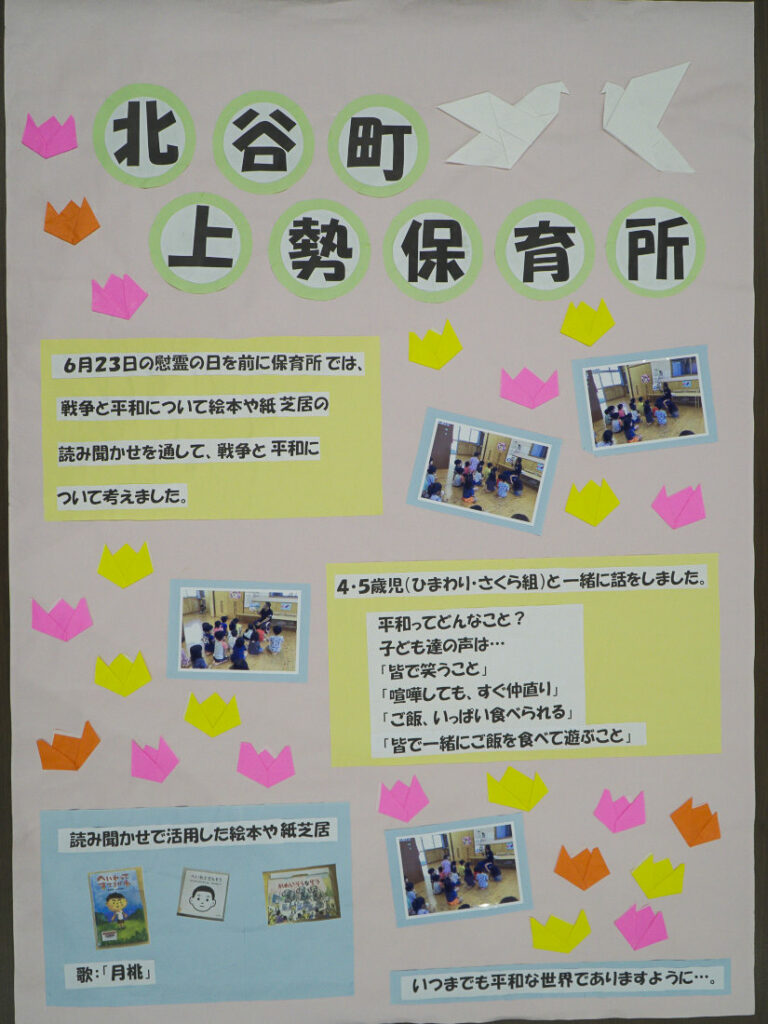 北谷町
上勢保育所
6月23日の慰霊の日を前に保育所では、
戦争と平和について絵本や紙芝居の
読み聞かせを通して、戦争と平和に
ついて考えました。
4・5歳児(ひまわり・さくら組)と一緒に話をしました。
平和ってどんなこと?
子ども達の声は…
「皆で笑うこと」
「喧嘩しても、すぐ仲直り」
「ご飯、いっぱい食べられる」
「皆で一緒にご飯を食べて遊ぶこと」
読み聞かせで活用した絵本や紙芝居
へいわって
へいわとせんそう
歌:「月桃」
いつまでも平和な世界でありますように…。